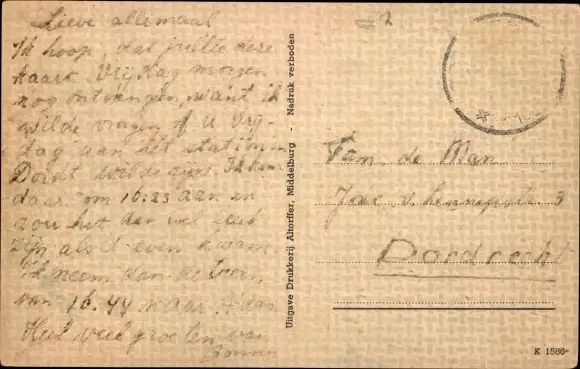 Lieve allemaal
Ik hoop, dat jullie deze
kaart Vrijdag morgen
nog ontvangen, want ik
wilde vragen of U Vrij-
dag aan het station
Dordt wilde zijn. Ik kom
daar om 16.23 aan en
zou het dan wel leuk
zijn als U even kwam
Ik neem dan de trein
van 16.44 naar
Heel veel groeten van
Uitgave Drukkerij Altorffer, Middelburg - Nadruk verboden
Fam. de Man
3
Dordrecht
K 1586